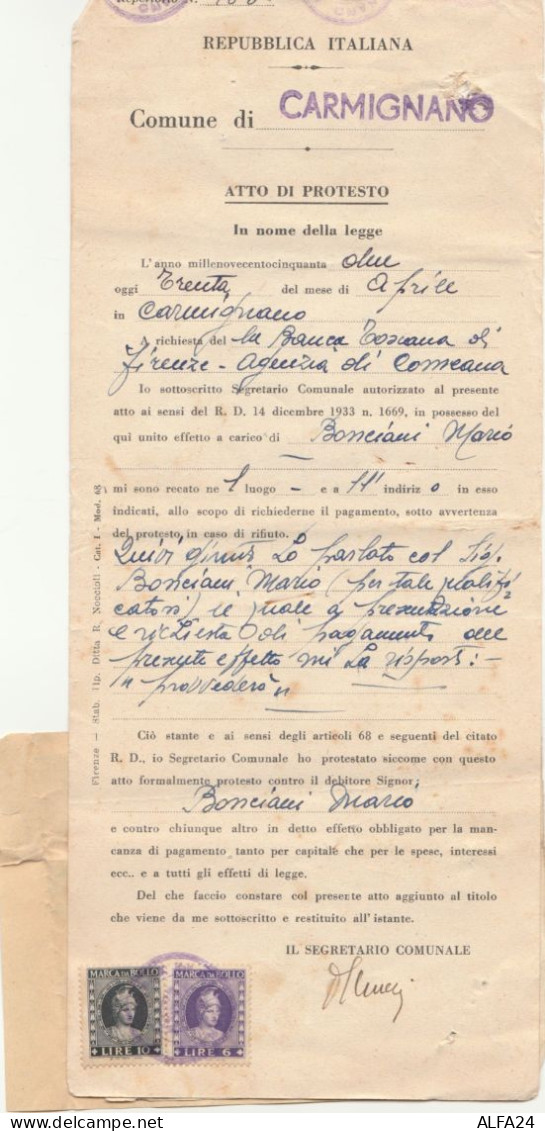 Repertorio N.
REPUBBLICA ITALIANA
Comune di CARMIGNANO
ATTO DI PROTESTO
In nome della legge
L'anno millenovecentocinquanta due
oggi Trenta del mese di Aprile
in Carmignano
A richiesta del la Banca Toscana di
Firenze - Agenzia di Comeana
Io sottoscritto Segretario Comunale autorizzato al presente
atto ai sensi del R. D. 14 dicembre 1933 n. 1669, in possesso del
qui unito effetto a carico di Bonciani Mario
mi sono recato ne l luogo - e a ll' indiriz o in esso
indicati, allo scopo di richiederne il pagamento, sotto avvertenza
del protesto, in caso di rifiuto.
Quivi giunto ho parlato col Sig.
Bonciani Mario (per tale qualifi
catosi) il quale a presentazione
e richiesta di pagamento del
presente effetto mi ha risposto :-
" provvederò "
Ciò stante e ai sensi degli articoli 68 e seguenti del citato
R. D., io Segretario Comunale ho protestato siccome con questo
atto formalmente protesto contro il debitore Signor:
Bonciani Mario
e contro chiunque altro in detto effetto obbligato per la man-
canza di pagamento tanto per capitale che per le spese, interessi
ecc.. e a tutti gli effetti di legge.
Del che faccio constare col presente atto aggiunto al titolo
che viene da me sottoscritto e restituito all'istante.
IL SEGRETARIO COMUNALE
MARCA DA BOLLO MARCA DA BOLLO
LIRE 10 LIRE 6
Firenze — Stab. Tip. Ditta R. Noccioli - Cat. I - Mod. 68
ALFA24